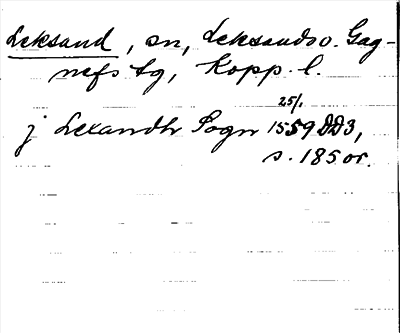 Leksand, sn, Leksands o. Gag-
nefs tg, Kopp. l.
j Lexandh Sogn 25/1 1559 DD3,
s. 185 or.